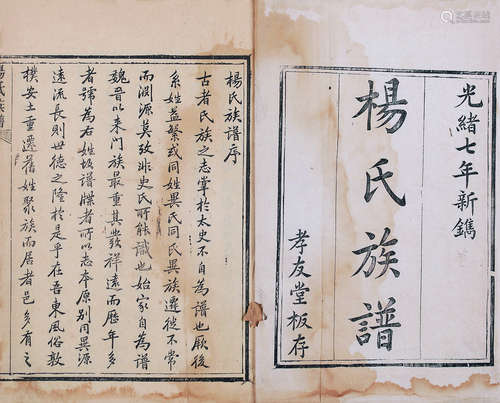 光緒七年新鐫
楊氏族譜
孝友堂板存
楊氏族譜序
古者氏族之志掌於太史不自為譜也厥後
系姓益繁或同姓異氏同氏異族遷徙不常
而淵源莫攷非史氏所能識也始家自為譜
魏晉以来門族最重其發祥遠而歷年多
者號為右姓故譜牒者所以志本原別同異源
遠流長則世德之隆於是乎在吾東風俗敦
樸安土重遷舊姓聚族而居者邑多有之